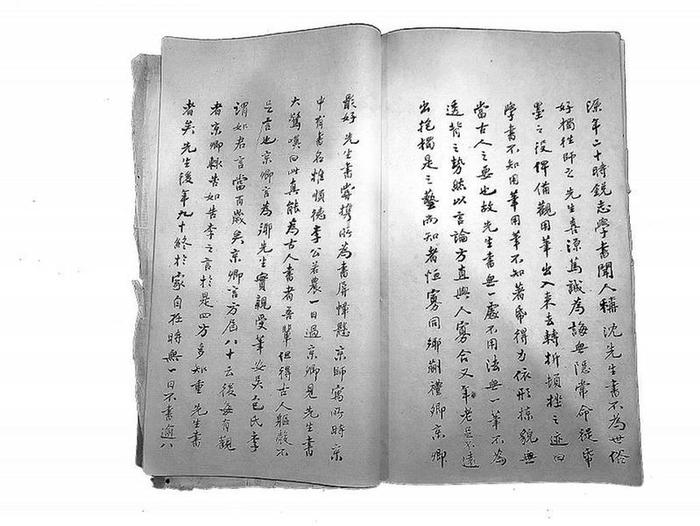 源年二十時銳志學書聞人稱沈先生書不為世俗
好獨往師之先生喜源篤誠為誨無隱常命從學
墨之役俾備觀用筆出入來去轉折頓挫之迹曰
學書不知用筆用筆不知著紙得力依形掠貌無
當古人之要也故先生書無一處不用法無一筆不為
透背之勢然以言論方直與人寡合又年老足不遠
出抱獨是之藝而知者恒寡同鄉蒯禮卿京卿
最好先生書嘗攜所為書屏懸京師寓所時京
中有書名推順德李公若農一日過京卿見先生書
大驚嘆曰此真能為古人書者吾輩但得古人軀殼不
足言也京卿言為鄉先生實親受筆安吳包氏李
謂如君言當百歲矣京卿言方屆八十云後每有觀
者京卿輒告如告李之言於是四方多知重先生書
者矣先生後年九十終於家自在時無一日不書逾八